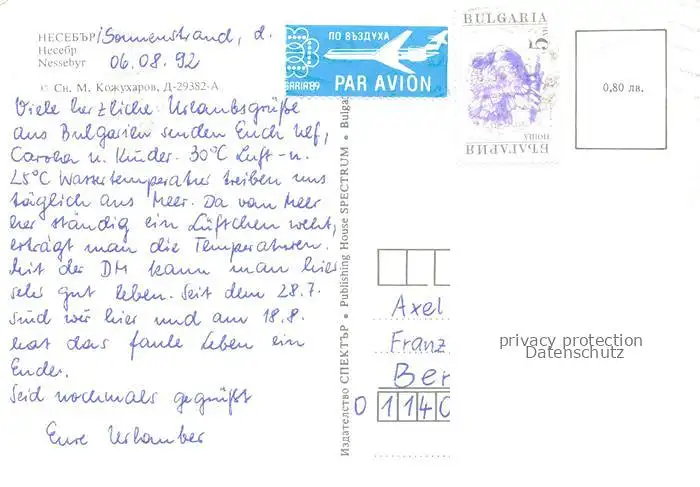 НЕСЕБЪР/Sonnenstrand, d.
Несебр
Nessebyr 06.08.92
© Сн. М. Кожухаров, Д-29382-А
Viele herzliche Urlaubsgrüße
aus Bulgarien senden Euch Ulf,
Carola u. Kinder. 30°C Luft- u.
25°C Wassertemperatur treiben uns
täglich ans Meer. Da vom Meer
her ständig ein Lüftchen weht,
erträgt man die Temperaturen.
Mit der DM kann man hier
sehr gut leben. Seit dem 28.7.
sind wir hier und am 18.8.
hat das faule Leben ein
Ende.
Seid nochmals gegrüßt
Eure Urlauber
Издателство СПЕКТЪР • Publishing House SPECTRUM • Bulga
ПО ВЪЗДУХА
GARIA'89
PAR AVION
BULGARIA
5
поща
БЪЛГАРИЯ
0,80 лв.
Axel
Franz
Ber
O 1140
privacy protection
Datenschutz